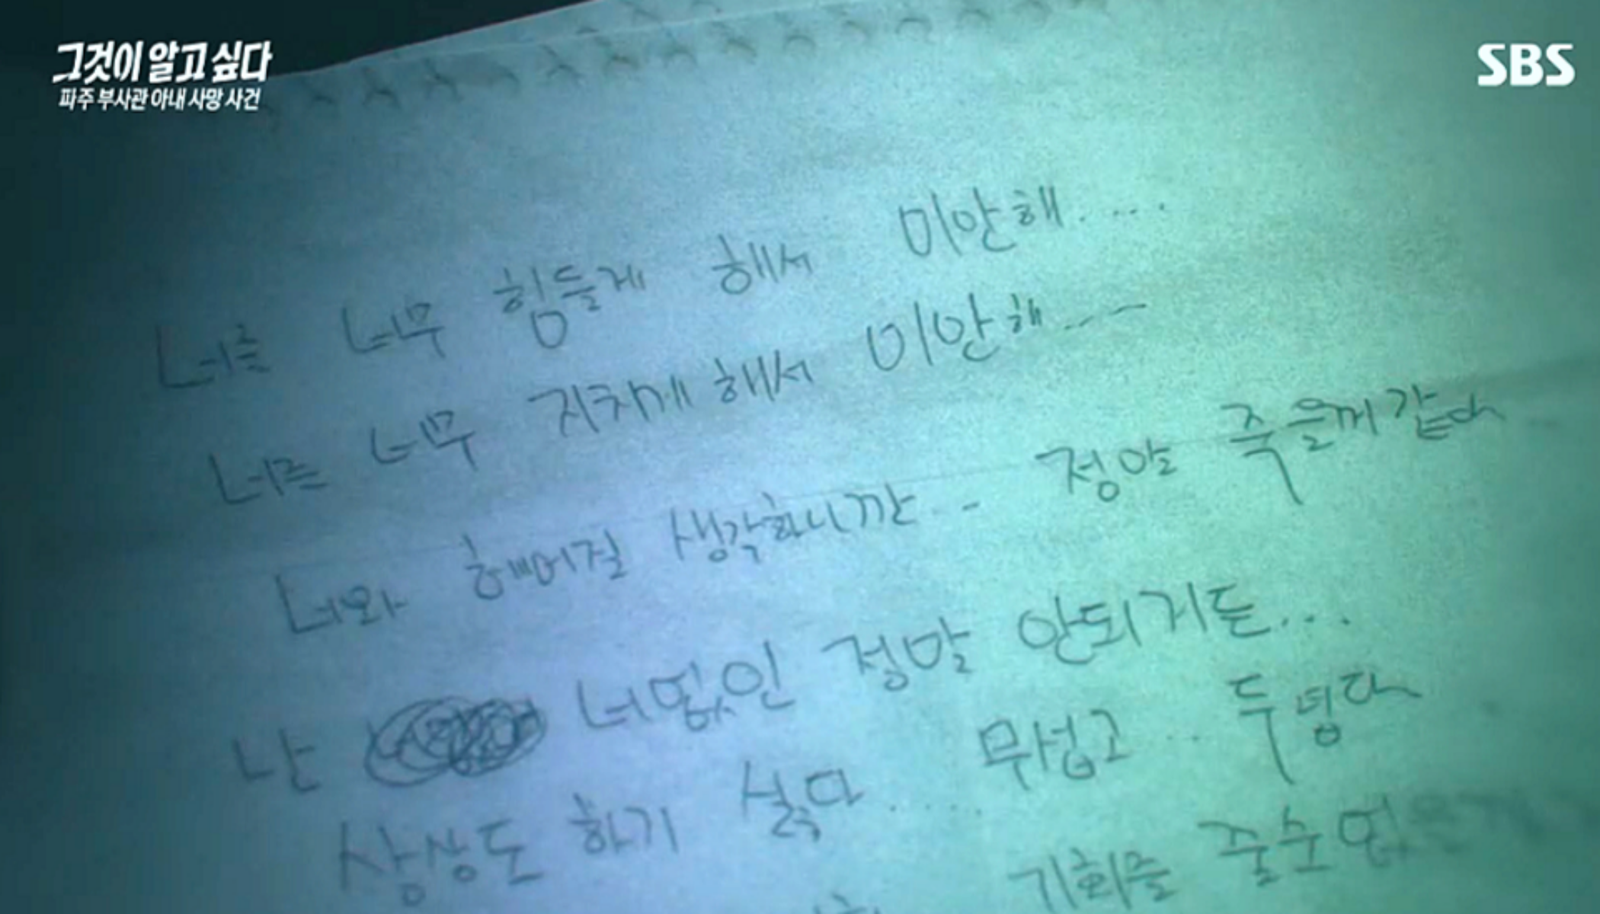 그것이 알고 싶다
파주 부사관 아내 사망 사건
SBS
너를 너무 힘들게 해서 미안해.....
너를 너무 지치게 해서 미안해...--
너와 헤어질 생각하니깐.. - 정말 죽을꺼 같다
난 너없인 정말 안되거든...
상상도 하기 싫다..... 무섭고.. 두렵다
기회를 줄수 없